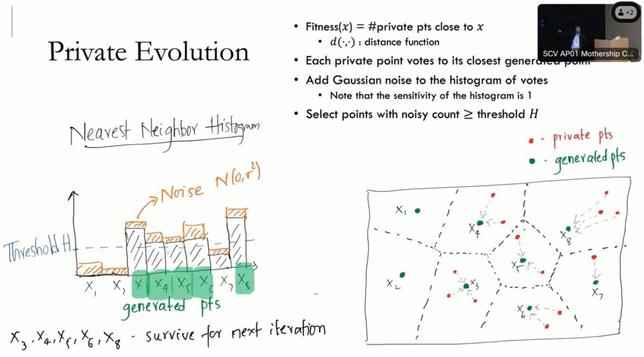 Private Evolution
Fitness(x) = #private pts close to x
d(·,·) : distance function
Each private point votes to its closest generated point
Add Gaussian noise to the histogram of votes
Note that the sensitivity of the histogram is 1
Select points with noisy count ≥ threshold H
+2
SCV AP01 Mothership C...
Nearest Neighbor Histogram
Noise N(0,σ²)
Threshold H
x₁ x₂ x₃ x₄ x₅ x₆ x₇ x₈
generated pts
x₃, x₄, x₅, x₆, x₈ - survive for next iteration
- private pts
- generated pts
x₁
x₄
x₈
x₅
x₂
x₃
x₇
x₆